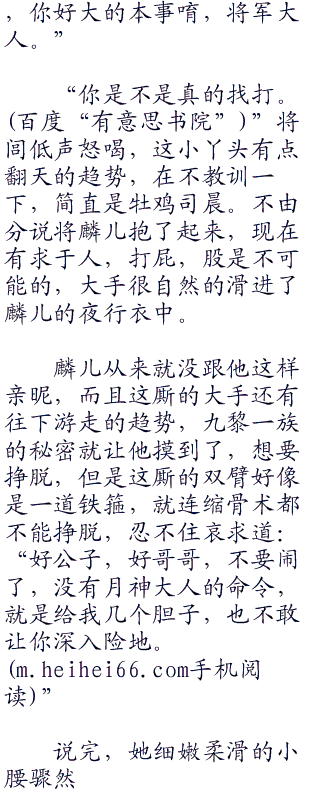 ，你好大的本事唷，将军大
人。”
“你是不是真的找打。
(百度“有意思书院”)”将
闾低声怒喝，这小丫头有点
翻天的趋势，在不教训一
下，简直是牡鸡司晨。不由
分说将麟儿抱了起来，现在
有求于人，打屁，股是不可
能的，大手很自然的滑进了
麟儿的夜行衣中。
麟儿从来就没跟他这样
亲昵，而且这厮的大手还有
往下游走的趋势，九黎一族
的秘密就让他摸到了，想要
挣脱，但是这厮的双臂好像
是一道铁箍，就连缩骨术都
不能挣脱，忍不住哀求道：
“好公子，好哥哥，不要闹
了，没有月神大人的命令，
就是给我几个胆子，也不敢
让你深入险地。
(m.heihei66.com手机阅
读)”
说完，她细嫩柔滑的小
腰骤然